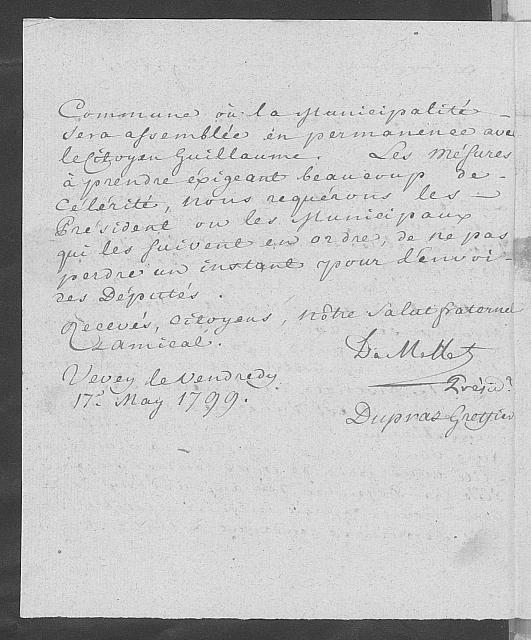 Commune où la Municipalité
sera assemblée en permanence avec
le Citoyen Guillaume. Les Mésures
à prendre éxigeant beaucoup de
Célérité, nous requérons les
Président ou les Municipaux
qui les suivent en ordre, de ne pas
perdre un instant pour l'envoi
des Députés.
Recevés, Citoyens, nôtre Salut fraternel
& amical.
De Mellet
Vevey le Vendredy
Présidt.
17e. May 1799.
Dupraz Greffier